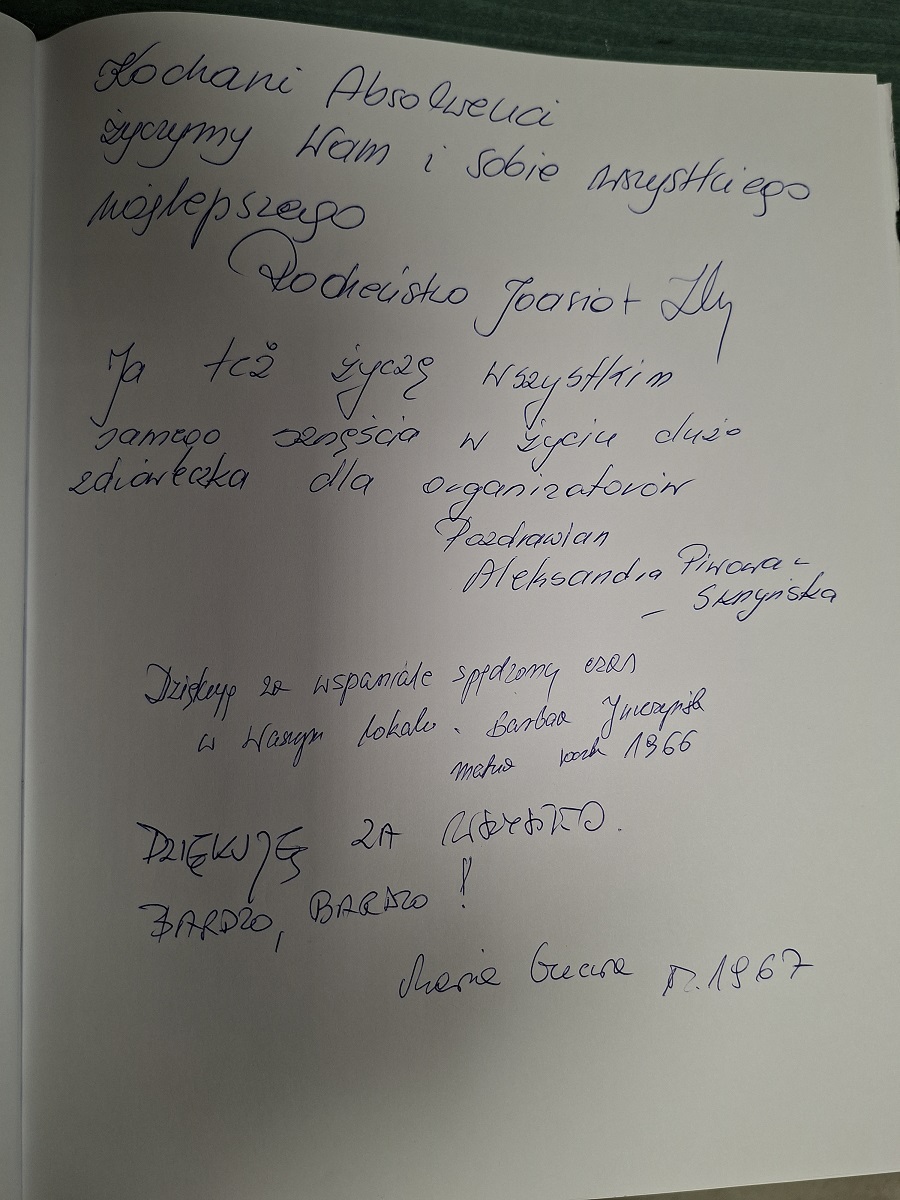 Kochani Absolwenci
życzymy Wam i sobie wszystkiego
najlepszego
Ja też życzę wszystkim
samego szczęścia w życiu dużo
zdróweczka dla organizatorów
Pozdrawiam
Aleksandra Piwowa-
-
Dziękuję za wspaniale spędzony czas
w Waszym lokalu. Barbara
matura rok 1966
DZIĘKUJĘ ZA WSZYSTKO.
BARDZO, BARDZO!
Maria r. 1967